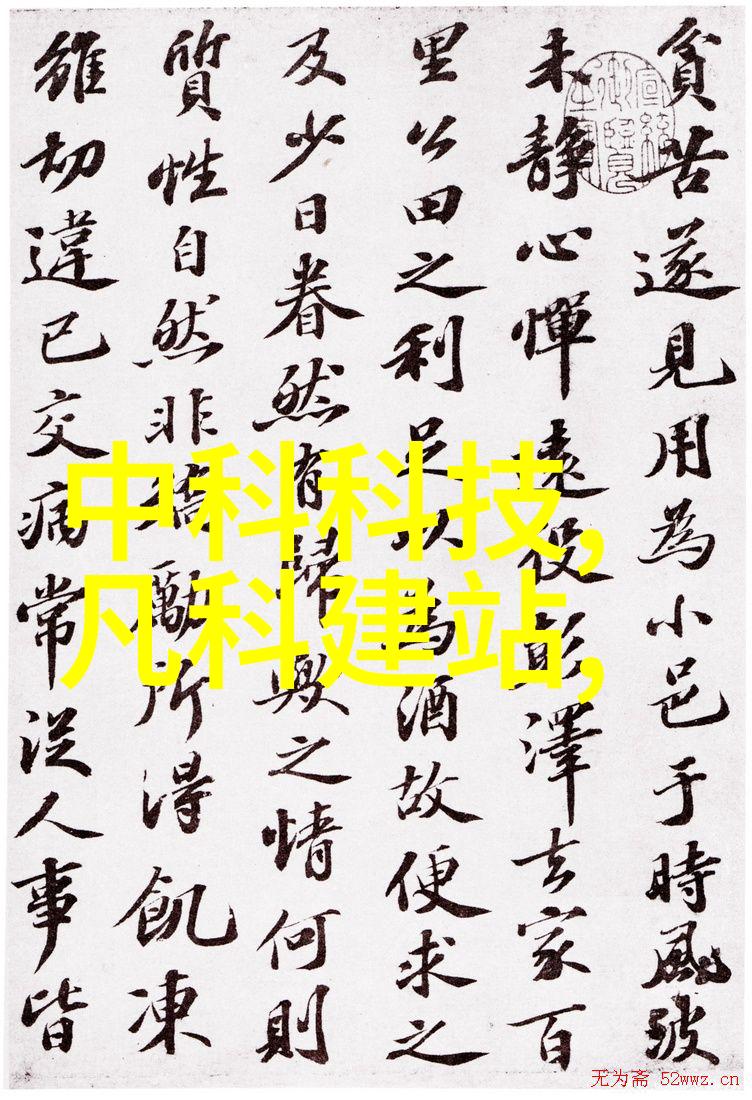 貧苦遂見用為小邑于時風波
未静心憚遠役彭澤去家百
里公田之利足以為酒故便求之
及少日眷然有歸歟之情何則
質性自然非矯勵所得飢凍
雖切違已交病常從人事皆
中科科技,
凡科建站,
无为斋 52wwz.cn